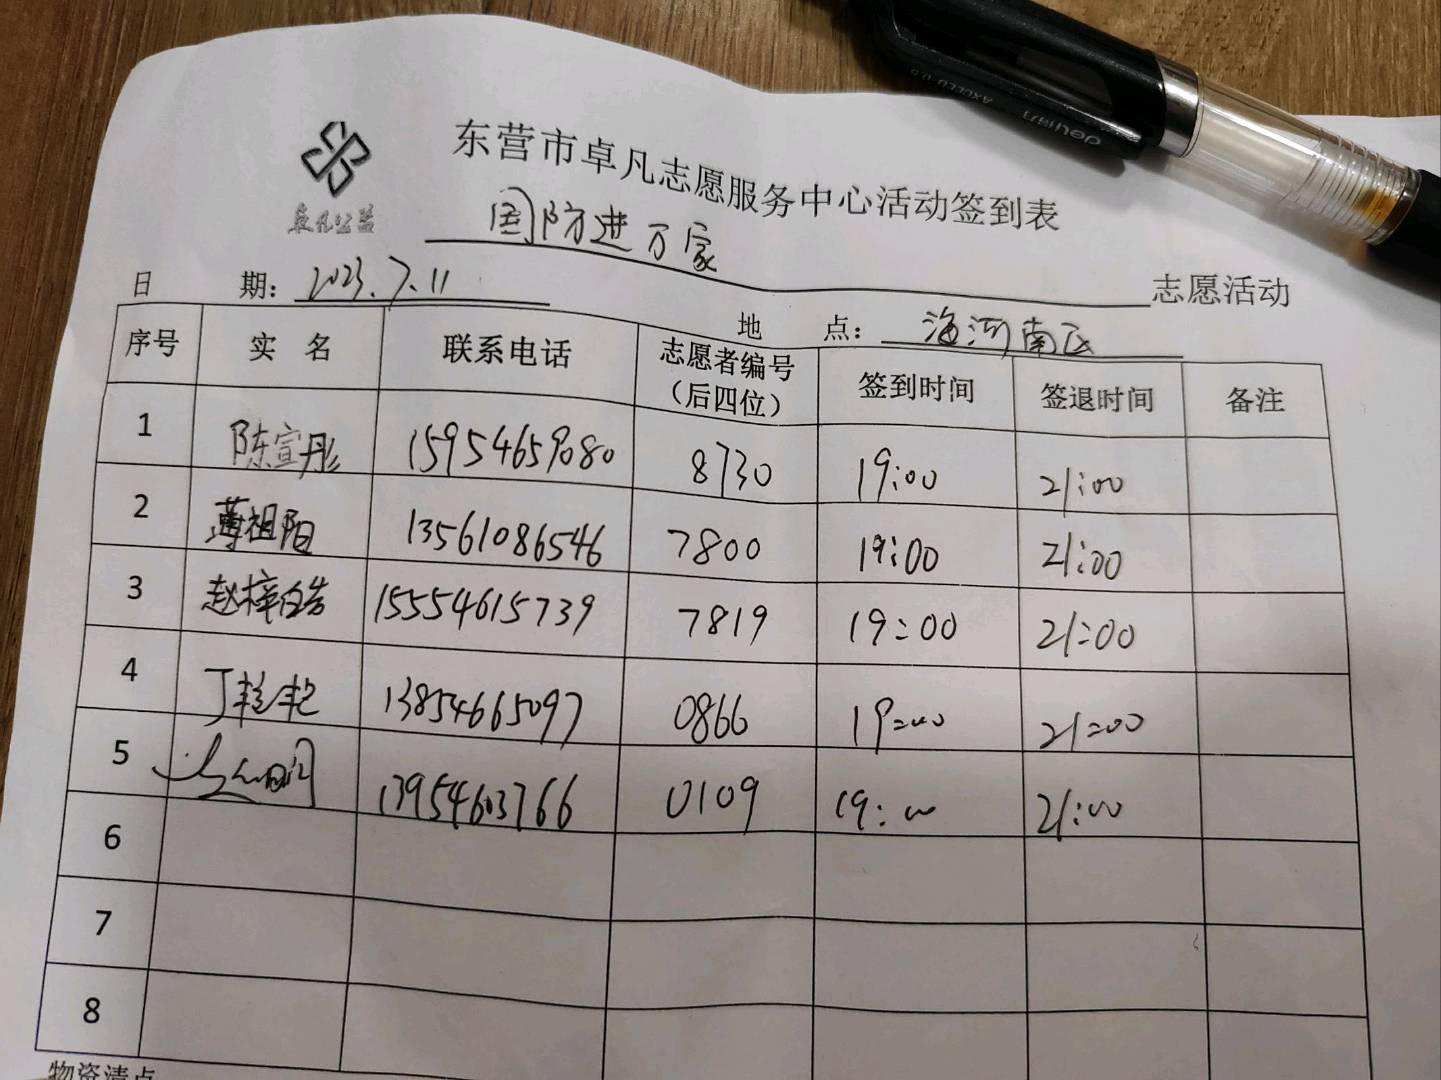 东营市卓凡志愿服务中心活动签到表
卓凡公益
国防进万家 志愿活动
日 期: 2023.7.11
地 点: 海河南区
序号 实 名 联系电话 志愿者编号(后四位) 签到时间 签退时间 备注
1 陈宣彤 15954659080 8730 19:00 21:00
2 薄祖阳 13561086546 7800 19:00 21:00
3 赵梓皓 15554615739 7819 19:00 21:00
4 丁艳艳 13854665097 0866 19:00 21:00
5 13954603766 0109 19:00 21:00
6
7
8
物资清点
deli得力